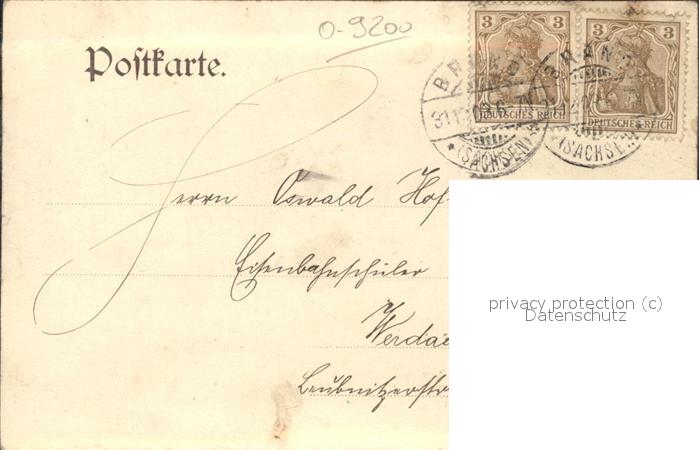 O-9200
Postkarte.
3 3
DEUTSCHES REICH DEUTSCHES REICH
BRAND
(SACHSEN) (SACHSEN
Herrn Oswald Hof
Eisenbahnschüler
Werda
Leubnitzerstr
privacy protection (c)
Datenschutz